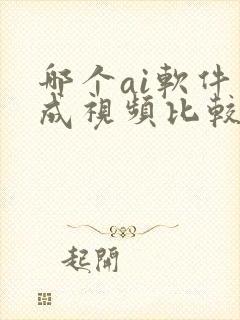 哪个ai軟件
成視頻比較
起開